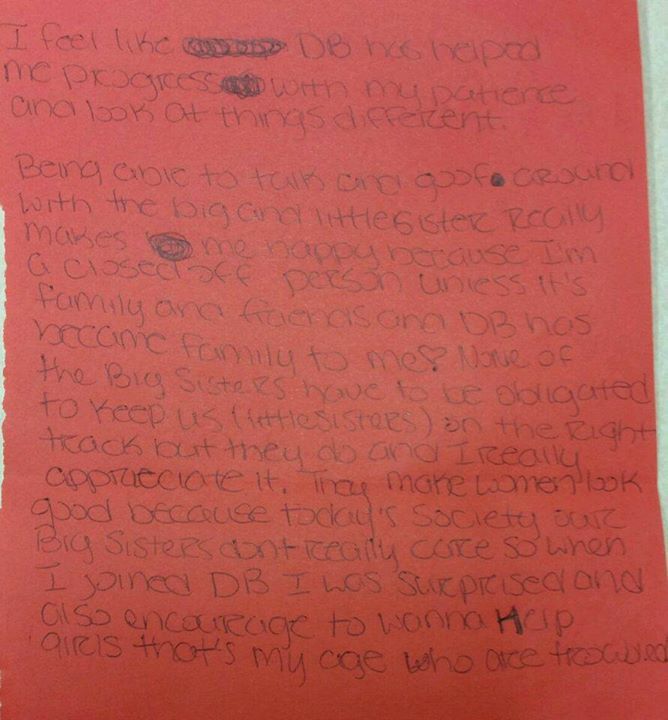 I feel like DB has helped
me progress with my patience
and look at things different.
Being able to talk and goof around
with the big and little sister Really
makes me happy because I'm
a closed off person unless it's
family and friends and DB has
became family to me♡ None of
the Big Sisters have to be obligated
to keep us (little sisters) on the Right
track but they do and I Really
appreciate it. They make women look
good because today's society our
Big Sisters dont really care so when
I joined DB I was surprised and
also encourage to wanna Help
girls that's my age who are